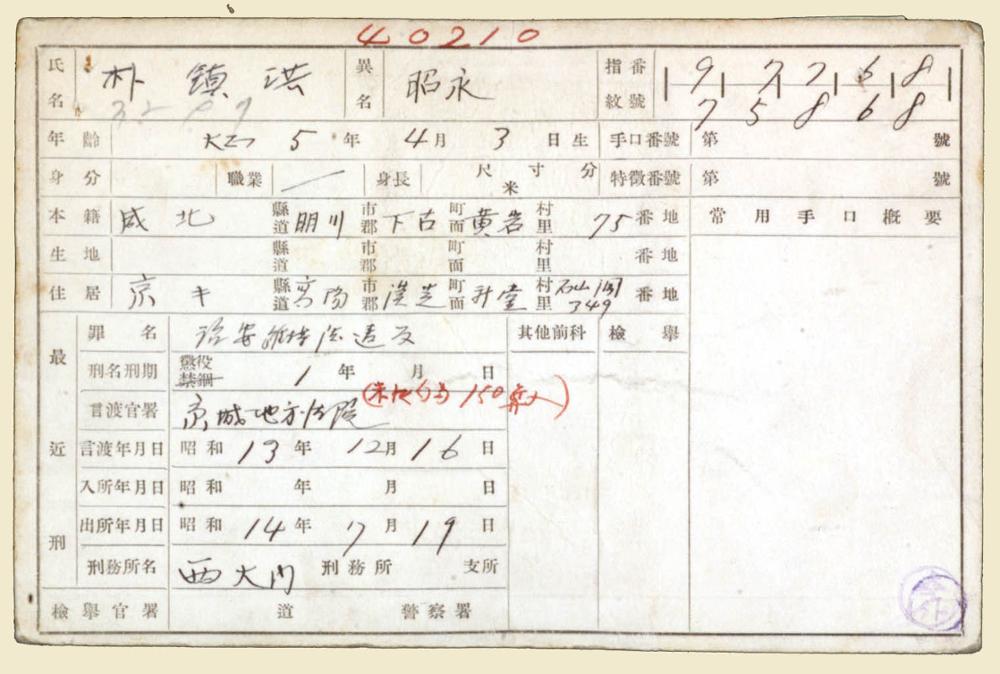 40210
氏名 朴鎮洪 異名 昭永 指紋番號 9 7 7 6 8
7 5 8 6 8
年齡 大正 5 年 4 月 3 日生 手口番號 第 號
身分 職業 身長 尺 寸 分 米 特徵番號 第 號
本籍 咸北 縣道 明川 市郡 下古 町面 黄岩 村里 75 番地 常用手口概要
生地 縣道 市郡 町面 村里 番地
住居 京キ 縣道 高陽 市郡 漢芝 町面 村里 349 番地
最近刑 罪名 治安維持法違反 其他前科 檢擧
刑名刑期 懲役 禁錮 1 年 月 日
(未決 150 算入)
言渡官署 京城地方法院
言渡年月日 昭和 13 年 12 月 16 日
入所年月日 昭和 年 月 日
出所年月日 昭和 14 年 7 月 19 日
刑務所名 西大门 刑務所 支所
檢擧官署 道 警察署